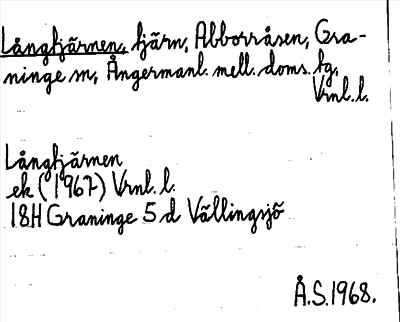 Långtjärnen, tjärn, Abborråsen, Gra-
ninge sn, Ångermanl. mell. doms. tg,
Vrnl. l.
Långtjärnen
ek (1967) Vrnl. l.
18H Graninge 5 d Vällingsjö
Å.S. 1968.